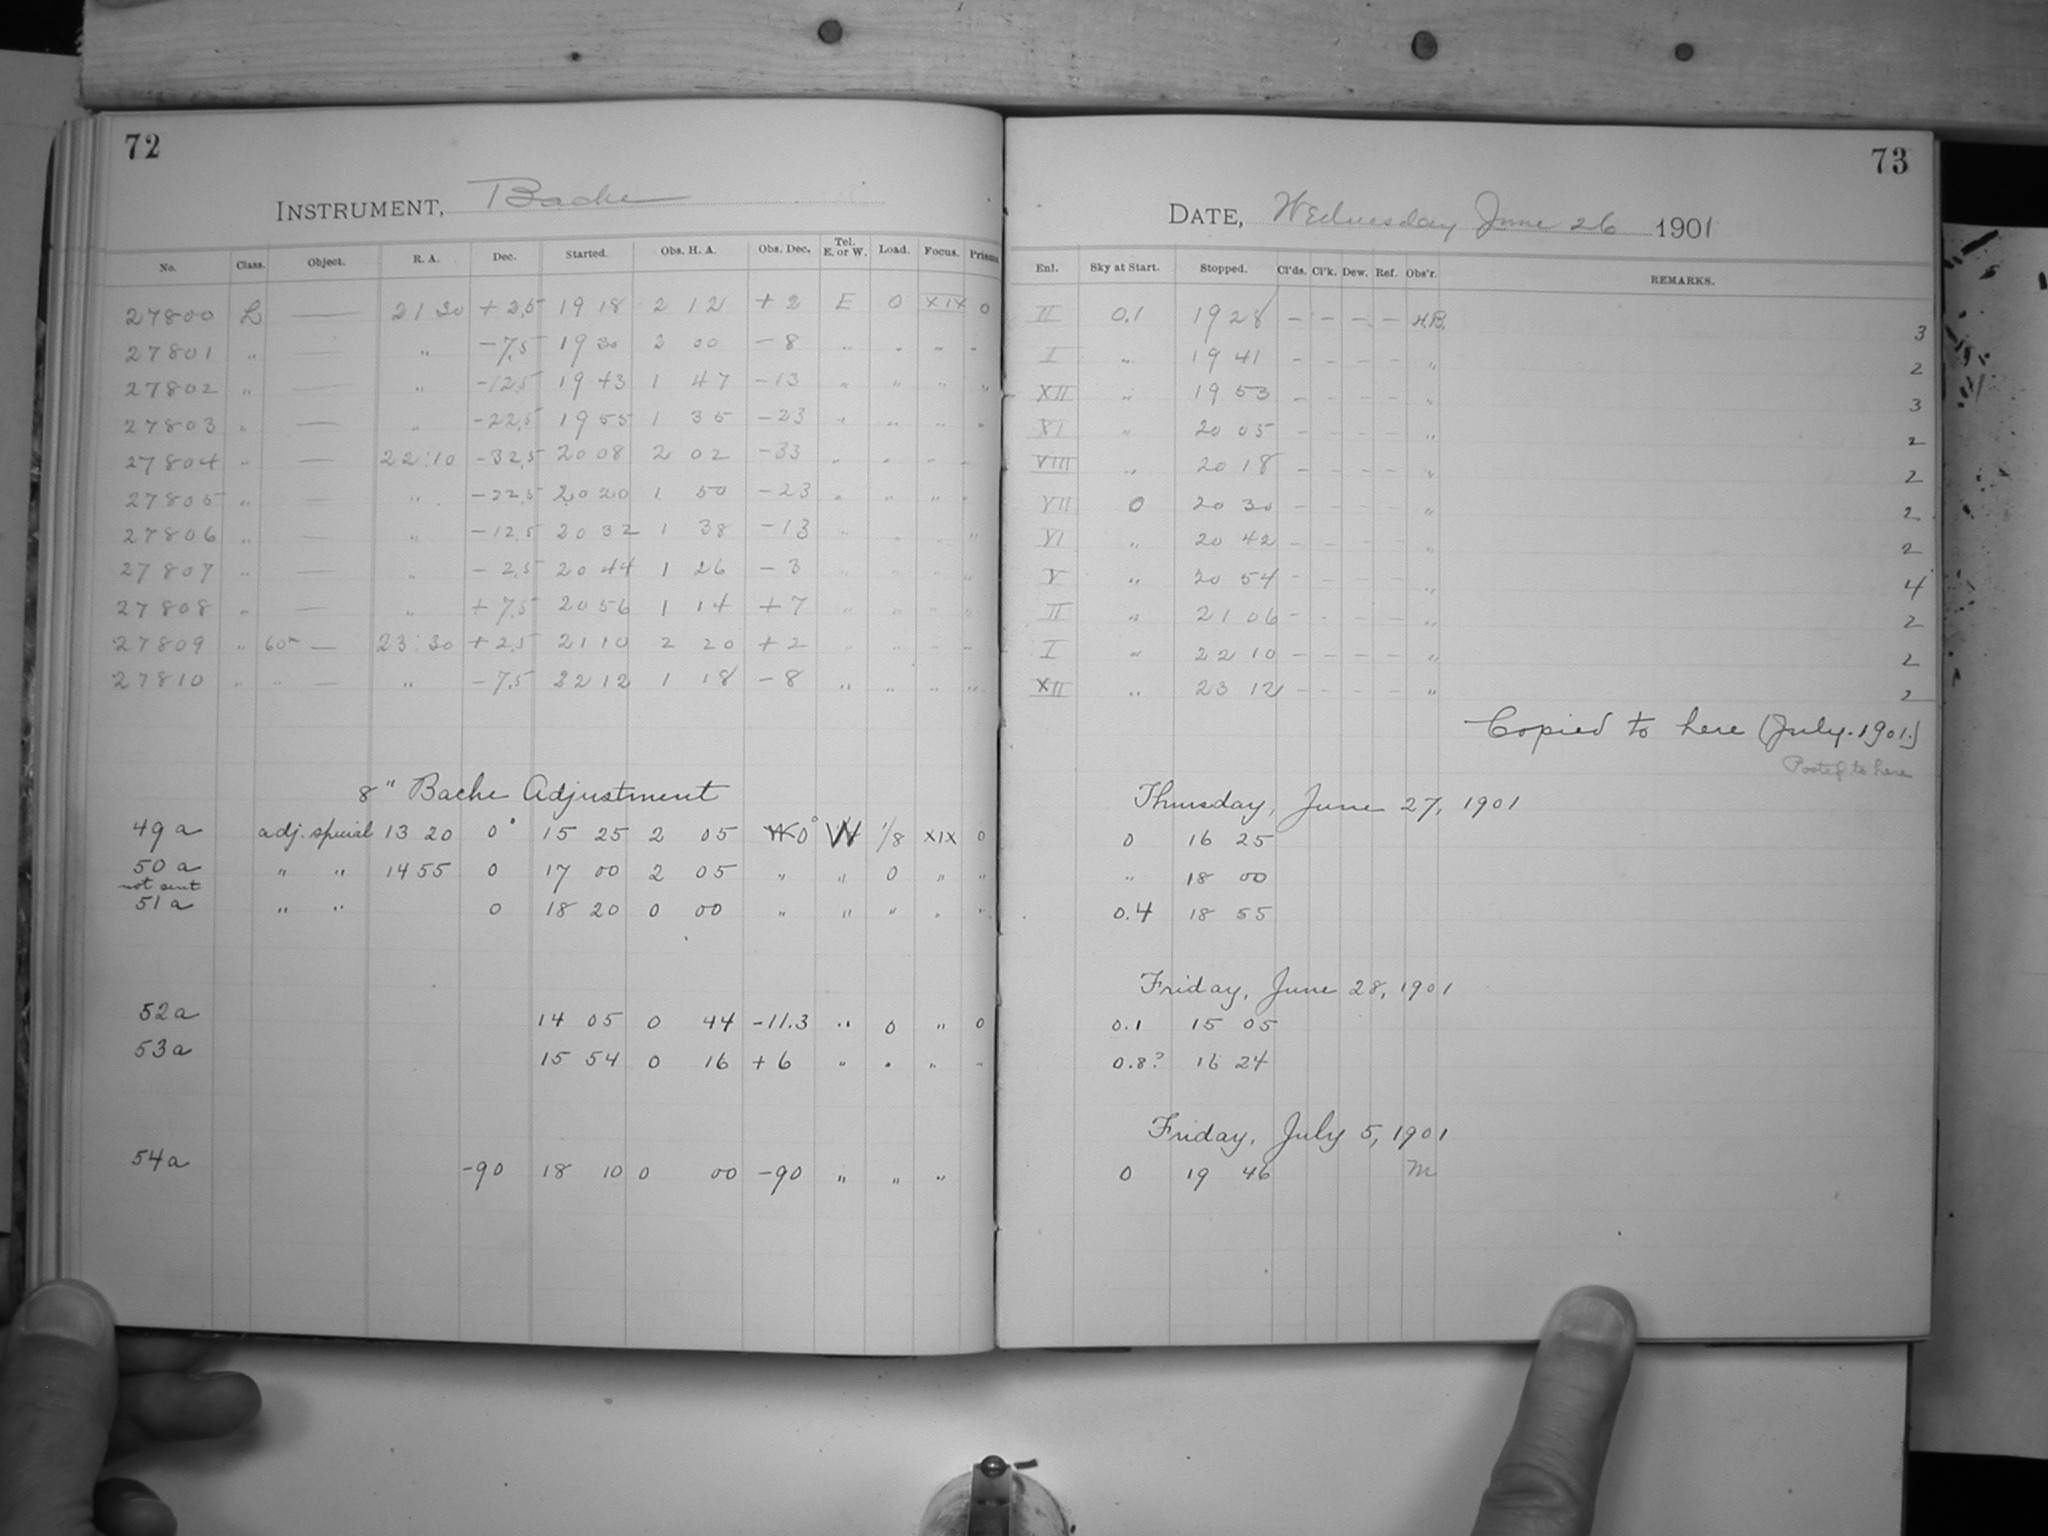 72
INSTRUMENT, Bache
No. Class. Object. R. A. Dec. Started. Obs. H. A. Obs. Dec. Tel. E. or W. Load. Focus. Prisms
27800 L — 21 30 +2.5 19 18 2 12 +2 E 0 XIX 0
27801 " — " -7.5 19 30 2 00 -8 " " " "
27802 " — " -12.5 19 43 1 47 -13 " " " "
27803 " — " -22.5 19 55 1 35 -23 " " " "
27804 " — 22:10 -32.5 20 08 2 02 -33 " " " "
27805 " — " -22.5 20 20 1 50 -23 " " " "
27806 " — " -12.5 20 32 1 38 -13 " " " "
27807 " — " -2.5 20 44 1 26 -3 " " " "
27808 " — " +7.5 20 56 1 14 +7 " " " "
27809 " 60m — 23:30 +2.5 21 10 2 20 +2 " " " "
27810 " " — " -7.5 22 12 1 18 -8 " " " "
8" Bache Adjustment
49a adj. special 13 20 0° 15 25 2 05 0° W 1/8 XIX 0
50a " " 14 55 0 17 00 2 05 " " 0 " "
not sent
51a " " 0 18 20 0 00 " " " " "
52a 14 05 0 44 -11.3 " 0 " 0
53a 15 54 0 16 +6 " " " "
54a -90 18 10 0 00 -90 " " "
73
DATE, Wednesday June 26 1901
Enl. Sky at Start. Stopped. Cl'ds. Cl'k. Dew. Ref. Obs'r. REMARKS.
II 0.1 19 28 – – – – H.B. 3
I " 19 41 – – – – " 2
XII " 19 53 – – – – " 3
XI " 20 05 – – – – " 2
VIII " 20 18 – – – – " 2
VII 0 20 30 – – – – " 2
VI " 20 42 – – – – " 2
V " 20 54 – – – – " 4
II " 21 06 – – – – " 2
I " 22 10 – – – – " 2
XII " 23 12 – – – – " 2
Copied to here (July. 1901.)
Posted to here
Thursday, June 27, 1901
0 16 25
" 18 00
0.4 18 55
Friday, June 28, 1901
0.1 15 05
0.8? 16 24
Friday, July 5, 1901
0 19 46 m